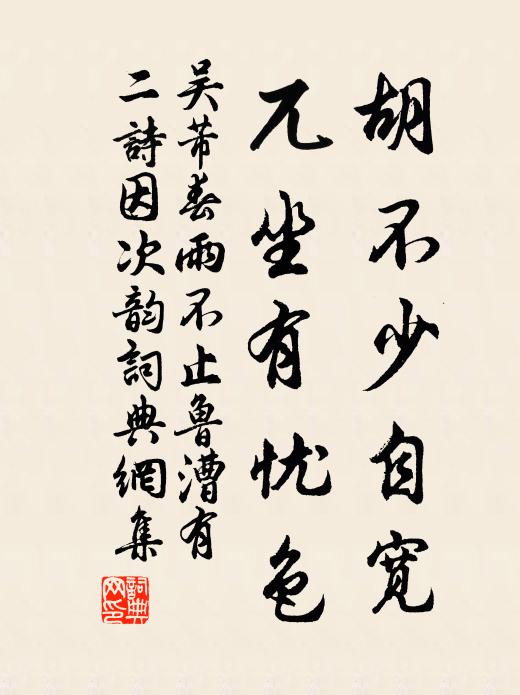 胡不少自寬
兀坐有忧色
吴芾春雨不止魯漕有
二詩因次韵詞典網集
詞典网印